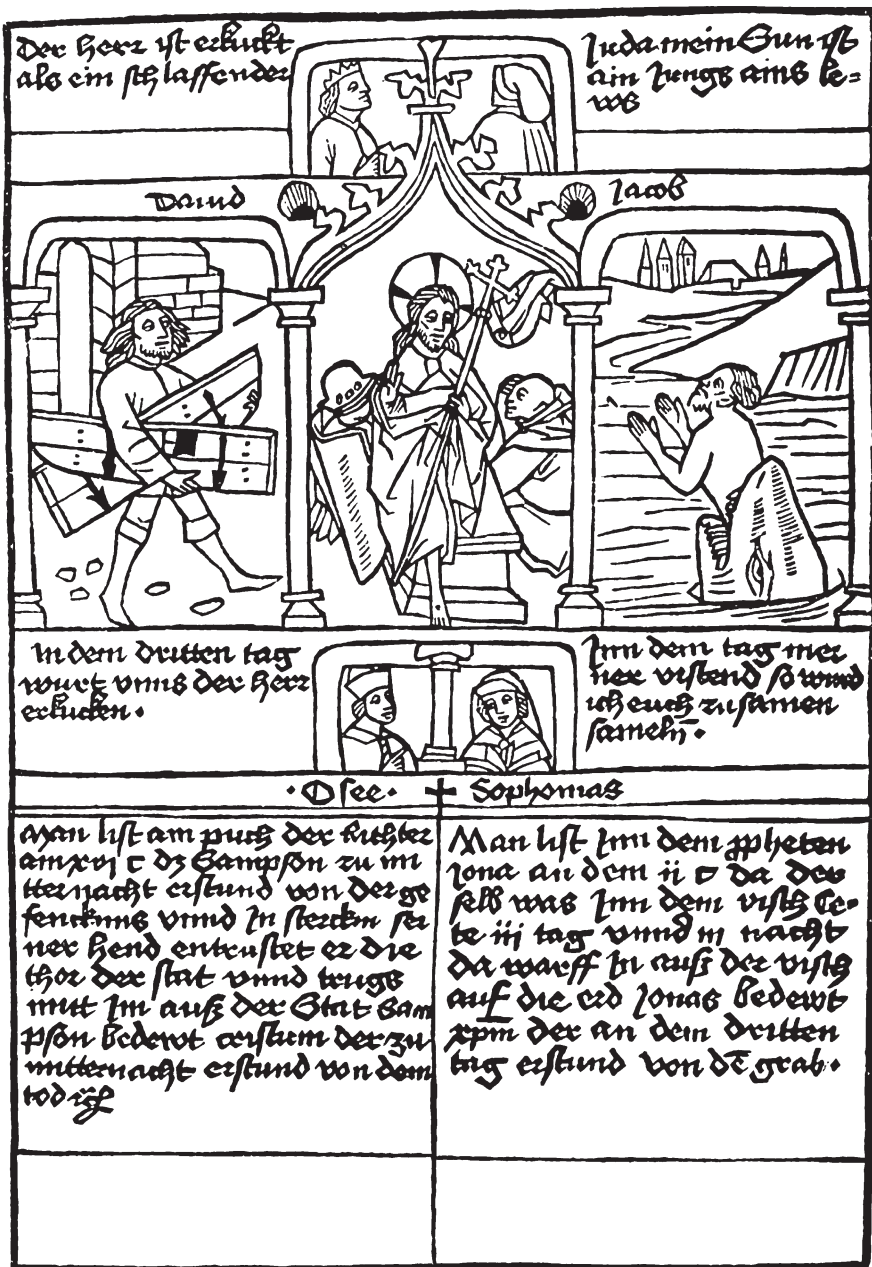 Der herr ist erkuckt
als ein schlaffender
Juda mein Sun ist
ain Jungs ains le=
ws
Dauid
Jacob
In dem dritten tag
wurt vnns der herr
erkucken.
Jnn dem tag mei
ner vrstend so wurd
ich euch zu samen
samelñ.
.Osee.
Sophonias
Man list am puch der Richter
am xvj c dz Sampson zu mi
tternacht erstund von der ge
fencknus vnnd Jn stercken sei
ner hend entrustet er die
thor der stat vnnd trugs
mitt Jm auß der Stat Sam
pson bedewt cristum der zu
mitternacht erstund von dem
tod
Man list Jnn dem ppheten
Jona an dem ij c da der
selb was Jnn dem visch Ce-
te iij tag vnnd iij nacht
da warff Jn auß der visch
auf die erd Jonas bedewt
xpm̄ der an dem dritten
tag erstund von dē grab.